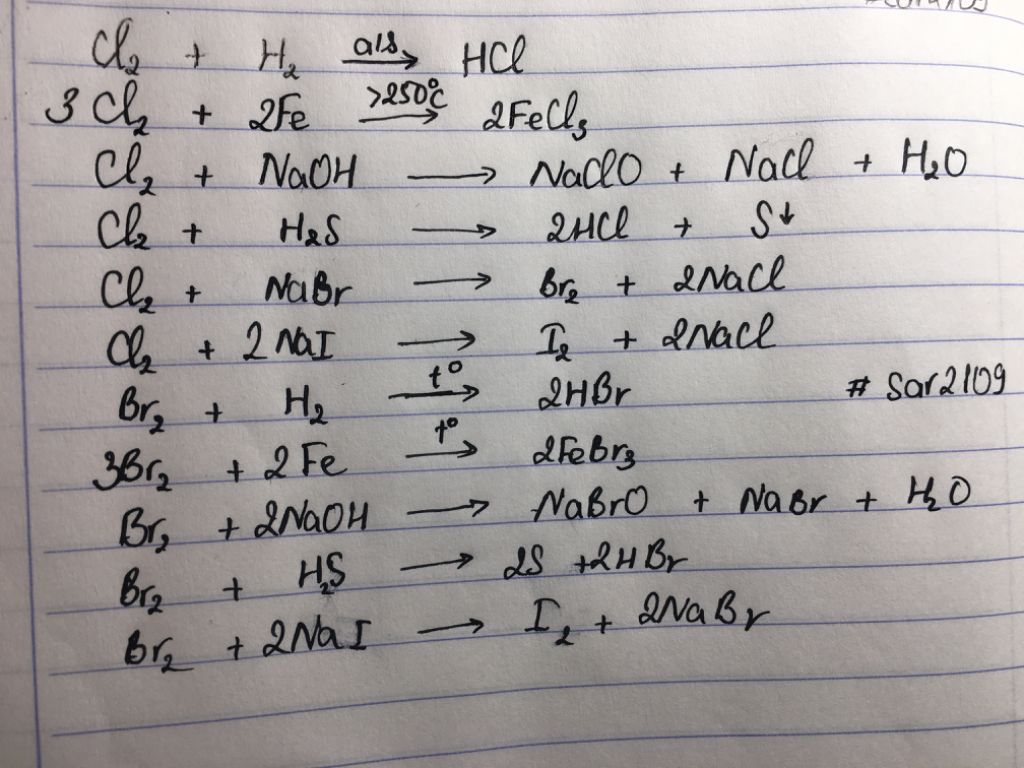 Cl₂ + H₂ —a/s→ HCl
3 Cl₂ + 2Fe —>250°C→ 2FeCl₃
Cl₂ + NaOH → NaClO + NaCl + H₂O
Cl₂ + H₂S → 2HCl + S↓
Cl₂ + NaBr → Br₂ + 2NaCl
Cl₂ + 2NaI → I₂ + 2NaCl
Br₂ + H₂ —t°→ 2HBr # Sar2109
3Br₂ + 2Fe —t°→ 2FeBr₃
Br₂ + 2NaOH → NaBrO + NaBr + H₂O
Br₂ + H₂S → 2S + 2HBr
Br₂ + 2NaI → I₂ + 2NaBr